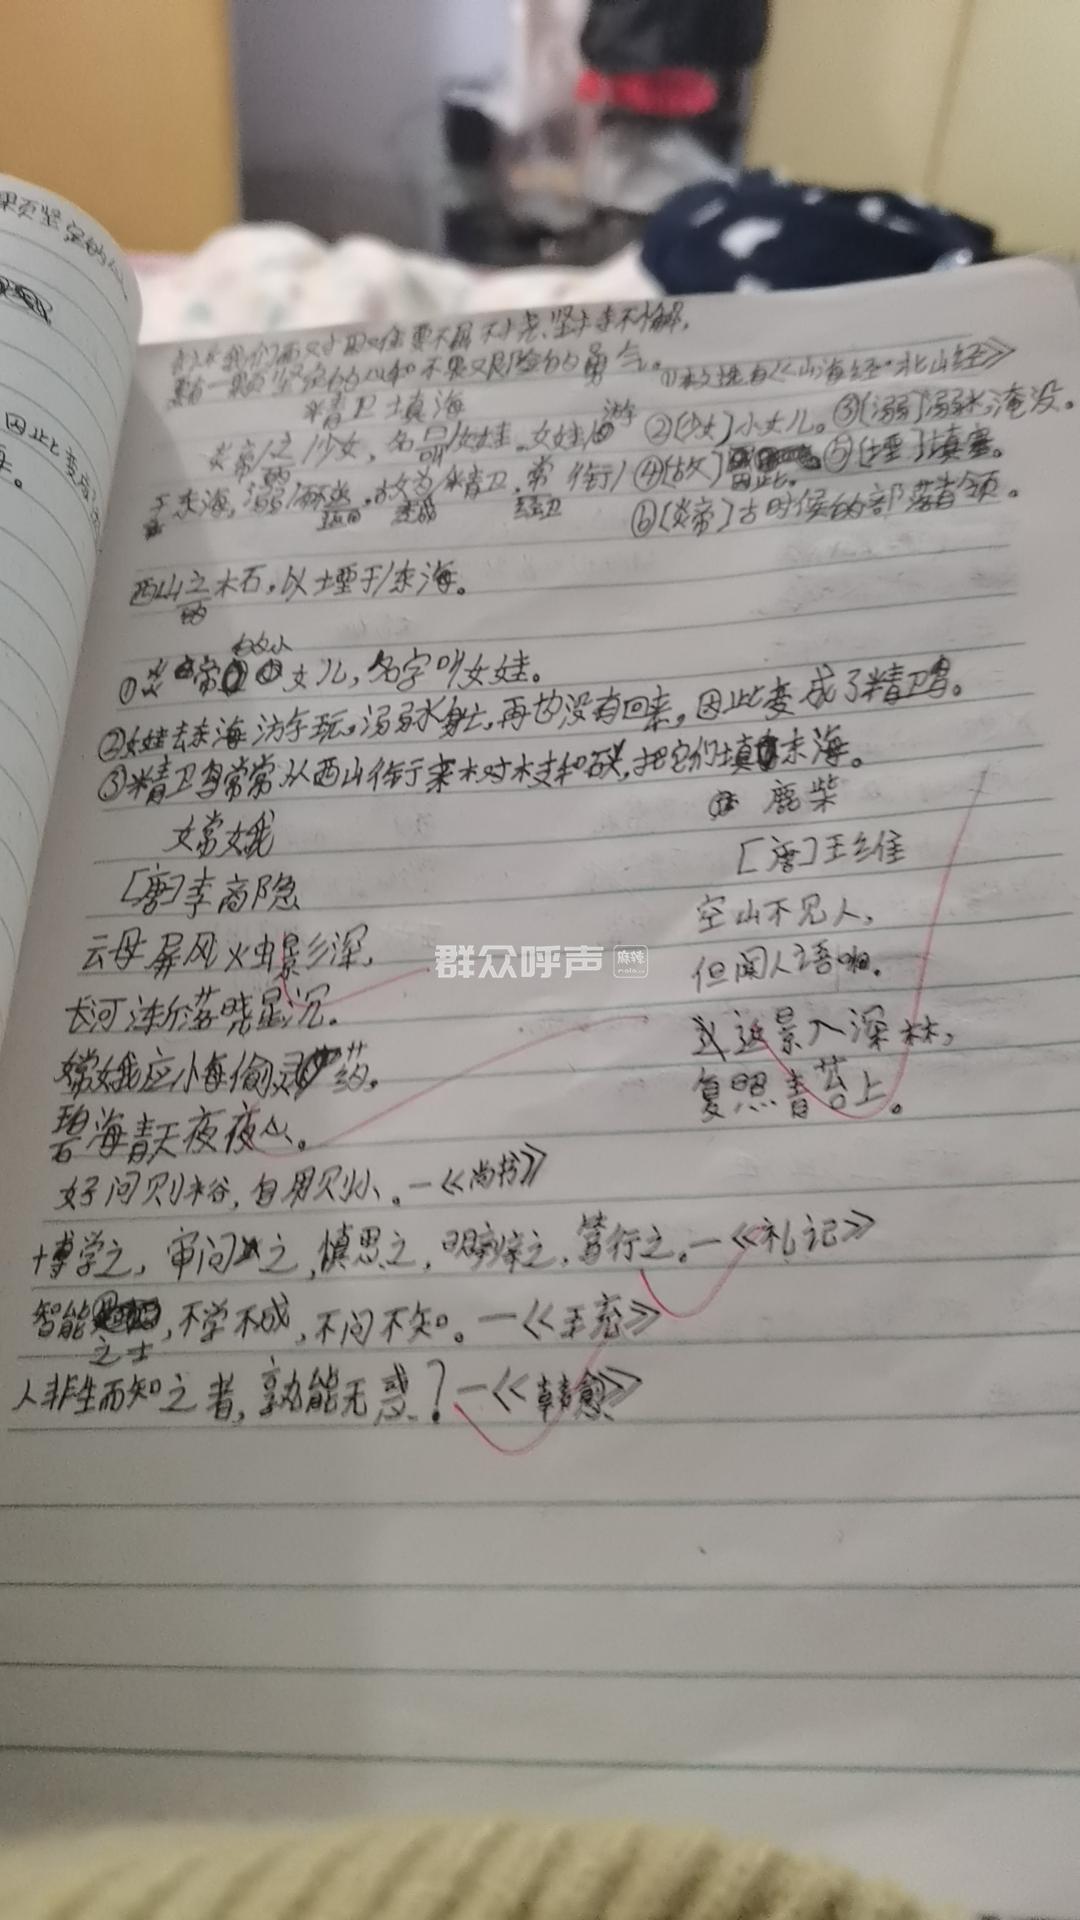 果页坚定的心
因此变成
告诉我们面对困难要不屈不挠、坚持不懈,
要有一颗坚定的心和不畏艰险的勇气。
①本文选自《山海经·北山经》
精卫填海
炎帝/之/少女,名曰/女娃。女娃/游
的 叫
②[少女]小女儿。③[溺]溺水,淹没。
于东海,溺/而不返,故为精卫,常衔/
返回 变成 经常
④[故]因此。⑤[堙]填塞。
⑥[炎帝]古时候的部落首领。
西山之木石,以堙于/东海。
的
①炎帝的小女儿,名字叫女娃。
②女娃去东海游玩,溺水身亡,再也没有回来,因此变成了精卫鸟。
③精卫鸟常常从西山衔来木对木支和石头,把它们填东海。
嫦娥
[唐]李商隐
云母屏风火虫影深,
长河渐落晓星沉。
嫦娥应悔偷灵药,
碧海青天夜夜心。
鹿柴
[唐]王维
空山不见人,
但闻人语响。
返景入深林,
复照青苔上。
好问则裕,自用则小。—《尚书》
博学之,审问之,慎思之,明辨之,笃行之。—《礼记》
智能之士,不学不成,不问不知。—《王充》
人非生而知之者,孰能无惑?—《韩愈》
群众呼声 麻辣